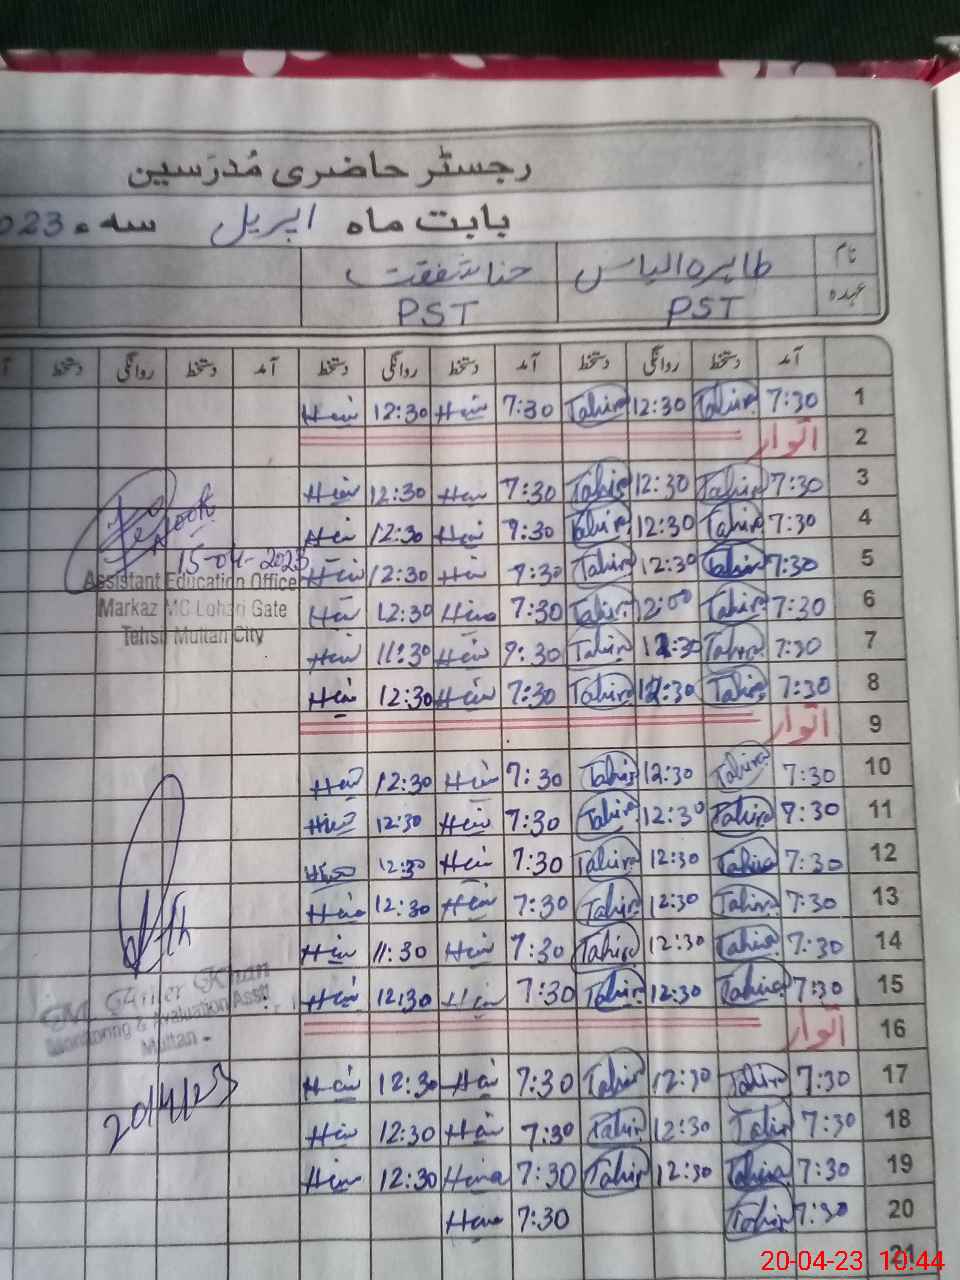 رجسٹر حاضری مُدرّسین
بابت ماہ اپریل سہ ء 2023
نام طاہرہ الیاس حنا شفقت
عہدہ PST PST
آمد دستخط روانگی دستخط آمد دستخط روانگی دستخط آمد دستخط روانگی دستخط
1 7:30 Tahira 12:30 Tahira 7:30 Hina 12:30 Hina
2 اتوار
3 7:30 Tahira 12:30 Tahira 7:30 Hina 12:30 Hina
4 7:30 Tahira 12:30 Tahira 7:30 Hina 12:30 Hina
5 7:30 Tahira 12:30 Tahira 7:30 Hina 12:30 Hina
6 7:30 Tahira 12:00 Tahira 7:30 Hina 12:30 Hina
7 7:30 Tahira 12:30 Tahira 7:30 Hina 11:30 Hina
8 7:30 Tahira 12:30 Tahira 7:30 Hina 12:30 Hina
9 اتوار
10 7:30 Tahira 12:30 Tahira 7:30 Hina 12:30 Hina
11 7:30 Tahira 12:30 Tahira 7:30 Hina 12:30 Hina
12 7:30 Tahira 12:30 Tahira 7:30 Hina 12:30 Hina
13 7:30 Tahira 12:30 Tahira 7:30 Hina 12:30 Hina
14 7:30 Tahira 12:30 Tahira 7:30 Hina 11:30 Hina
15 7:30 Tahira 12:30 Tahira 7:30 Hina 12:30 Hina
16 اتوار
17 7:30 Tahira 12:30 Tahira 7:30 Hina 12:30 Hina
18 7:30 Tahira 12:30 Tahira 7:30 Hina 12:30 Hina
19 7:30 Tahira 12:30 Tahira 7:30 Hina 12:30 Hina
20 7:30 Tahira 7:30 Hina
21
15-04-2023
Assistant Education Office
Markaz MC Lohari Gate
Tehsil Multan City
M. Amer Khan
Monitoring & Evaluation Asstt
Multan -
20/4/23
20-04-23 10:44